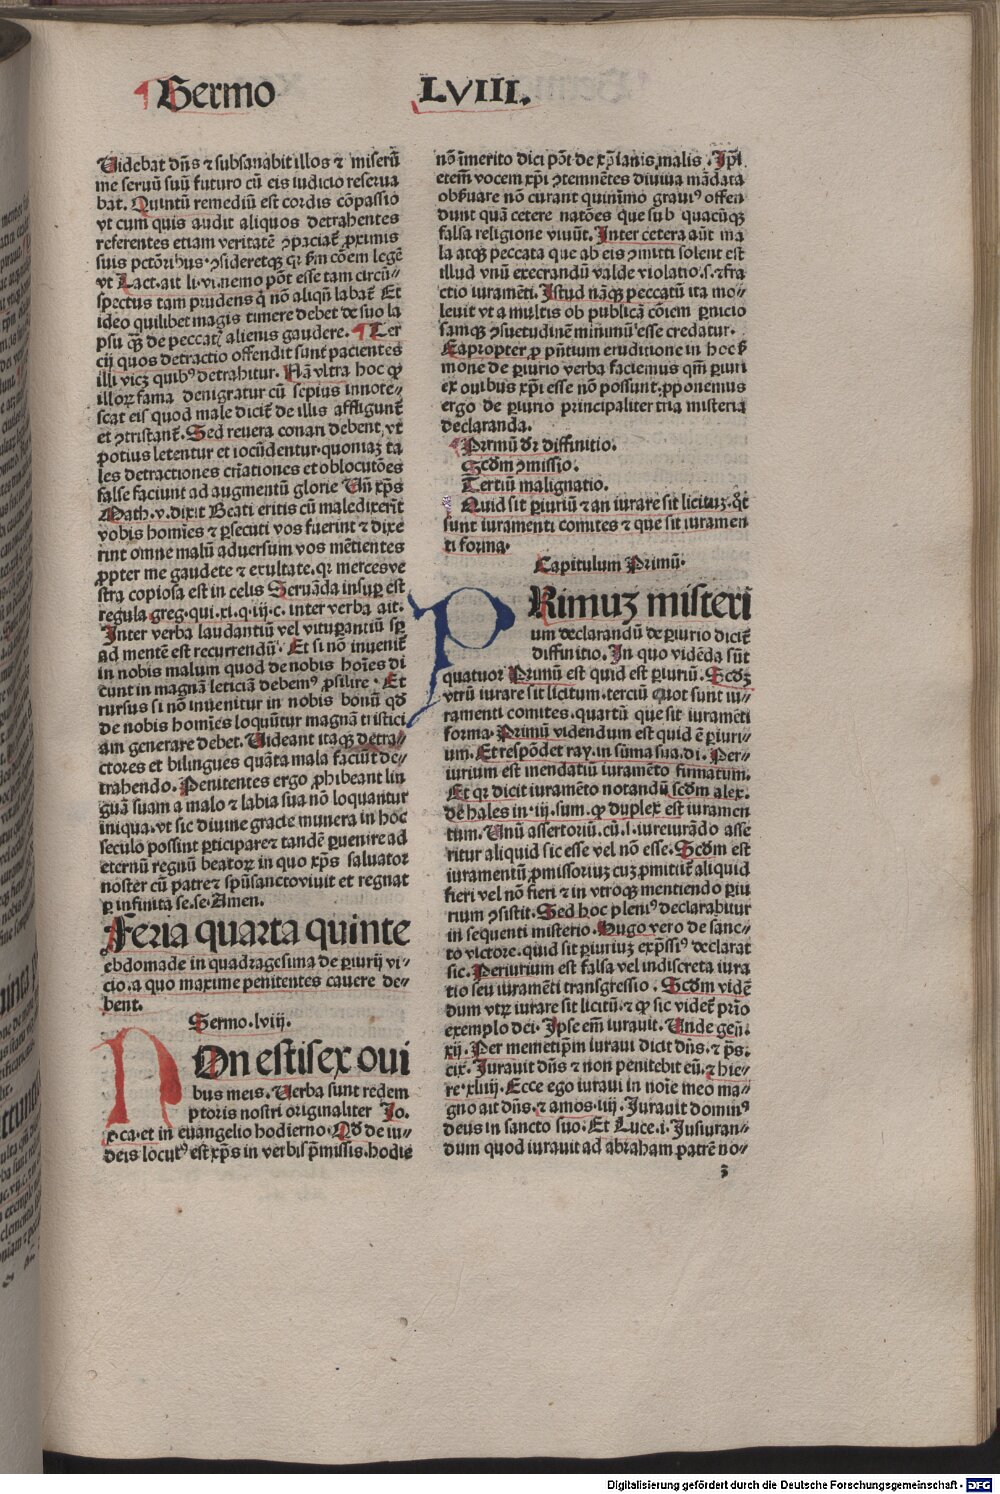 Sermo LVIII.
Videbat dn̄s ⁊ subsanabit illos ⁊ miserū
me seruū suū futuro cū eis iudicio reserua
bat. Quintū remediū est cordis cōpassio
vt cum quis audit aliquos detrahentes
referentes etiam veritatē ꝯpaciat̄ ꝓximis
suis pctōribus·ꝯsideretqꝫ qꝛ ẜm cōem legē
vt Lact.ait li·vi.nemo pōt esse tam circū-
spectus tam prudens q̇ nō aliqn̄ labat̄ Et
ideo quilibet magis timere debet de suo la
psu qꝫ de peccat̄ alienis gaudere. Ter
cij quos detractio offendit sunt pacientes
illi vicꝫ quibꝰ detrahitur. Nā vltra hoc ꝙ
illoꝝ fama denigratur cū sepius innote-
scat eis quod male dicūt de illis affligunt̄
et ꝯtristant̄. Sed reuera conari debent, vt
potius letentur et iocūdentur·quoniaꝫ ta
les detractiones cr̄iationes et oblocutōes
false faciunt ad augmentū glorie Vn̄ xp̄s
Math.v.dixit Beati eritis cū maledixerīt
vobis homīes ⁊ ꝑsecuti vos fuerint ⁊ dixe
rint omne malū aduersum vos mētientes
ꝓpter me gaudete ⁊ exultate.qꝛ merces ve
stra copiosa est in celis Seruāda insuꝑ est
regula greg.qui.xi.q.iij.c.inter verba ait.
Inter verba laudantiū vel vituꝑantiū sꝑ
ad mentē est recurrendū. Et si nō inuenit̄
in nobis malum quod de nobis hoīes di
cunt in magnā leticiā debemꝰ ꝓsilire. Et
rursus si nō inuenitur in nobis bonū qd̄
de nobis homīes loquūtur magnā tristici
am generare debet. Videant itaqꝫ detra-
ctores et bilingues quāta mala faciūt de-
trahendo. Penitentes ergo ꝓhibeant lin
guā suam a malo ⁊ labia sua nō loquantur
iniqua.vt sic diuine gracie munera in hoc
seculo possint ꝑticipare⁊ tandē ꝑuenire ad
eternū regnū beatoꝝ in quo xp̄s saluator
noster cū patre⁊ spūsancto viuit et regnat
ꝑ infinita se.se·Amen.
Feria quarta quinte
ebdomade in quadragesima de ꝑiurij vi-
cio.a quo maxime penitentes cauere de-
bent.
Sermo.lviij.
NOn estis ex oui
bus meis. Verba sunt redem
ptoris nostri originaliter Jo.
x ca.et in euangelio hodierno. Qd̄ de iu-
deis locutꝰ est xp̄s in verbis p̄missis.hodie
nō īmerito dici pōt de xp̄ianis malis. Ipī
etem̄ vocem xp̄i ꝯtemnētes diuina mādata
obseruare nō curant quinimo grauiꝰ offen
dunt quā cetere natōes que sub quacūqꝫ
falsa religione viuūt. Inter cetera aūt ma
la atqꝫ peccata que ab eis ꝯmitti solent est
illud vnū execrandū valde violatio.s.⁊ fra
ctio iuramēti. Istud nāqꝫ peccatū ita mo-
leuit vt a multis ob publicā cōiem ꝑnicio
samqꝫ ꝯsuetudinē minimū esse credatur.
Eapropter ꝓ pn̄tium eruditione in hoc ẜ
mone de ꝑiurio verba faciemus qm̄ ꝑiuri
ex ouibus xp̄i esse nō possunt·ꝓponemus
ergo de ꝑiurio principaliter tria misteria
declaranda.
Prīmū dr̄ diffinitio.
Scd̄m ꝯmissio.
Tertiū malignatio.
Quid sit ꝑiuriū ⁊ an iurare sit licituꝫ.qt̄
sunt iuramenti comites ⁊ que sit iuramen
ti forma.
Capitulum Primū.
PRimuꝫ misteri
um declarandū de ꝑiurio dicit̄
diffinitio. In quo vidēda sūt
quatuor Primū est quid est ꝑiuriū. Scd̄ꝫ
vtrū iurare sit licitum.terciū quot sunt iu-
ramenti comites.quartū que sit iuramēti
forma. Primū videndum est quid ē ꝑiuri-
um. Et respōdet ray.in sūma sua.di. Per-
iurium est mendatiū iuramēto firmatum.
Et qꝛ dicit iuramēto notandū scd̄m alex.
de hales in.iij.sum.ꝙ duplex est iuramen
tum. Vnū assertoriū.cū.s.iureiurādo asse
ritur aliquid sic esse vel nō esse. Scd̄m est
iuramentū ꝓmissoriuꝫ cuꝫ ꝓmittit̄ aliquid
fieri vel nō fieri ⁊ in vtroqꝫ mentiendo ꝑiu
rium ꝯsistit. Sed hoc pleniꝰ declarabitur
in sequenti misterio. Hugo vero de sanc-
to victore.quid sit ꝑiuriuꝫ exp̄ssiꝰ declarat
sic. Periurium est falsa vel indiscreta iura
tio seu iuramēti transgressio. Scd̄m vidē
dum vtꝝ iurare sit licitū.⁊ ꝙ sic videt̄ p̄rio
exemplo dei. Ipse em̄ iurauit. Vnde geñ.
xij. Per memetip̄m iuraui dicit dn̄s.⁊ ps̄.
cix. Iurauit dn̄s ⁊ non penitebit eū.⁊ hie-
re.xliiij. Ecce ego iuraui in noīe meo ma-
gno ait dn̄s.⁊ amos.iiij. Iurauit dominꝰ
deus in sancto suo. Et Luce.i. Iusiuran-
dum quod iurauit ad abraham patrē no-
3
Digitalisierung gefördert durch die Deutsche Forschungsgemeinschaft - DFG